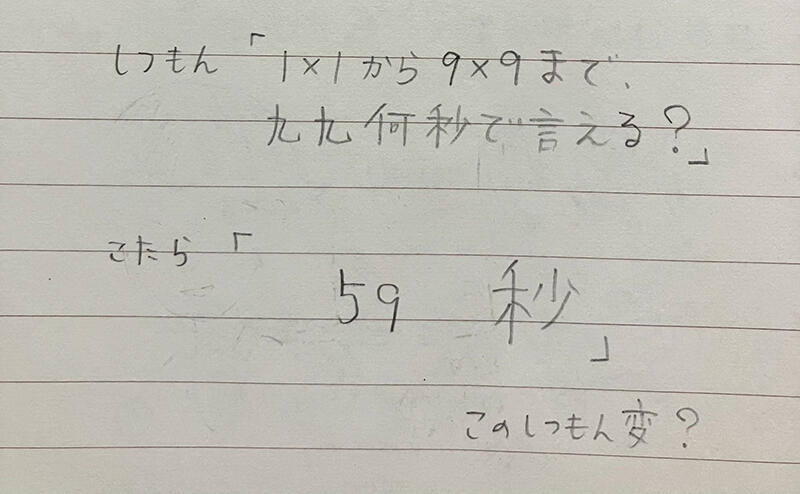 しつもん「1×1から9×9まで、
九九何秒で言える?」
こたら「
59 秒」
このしつもん変?